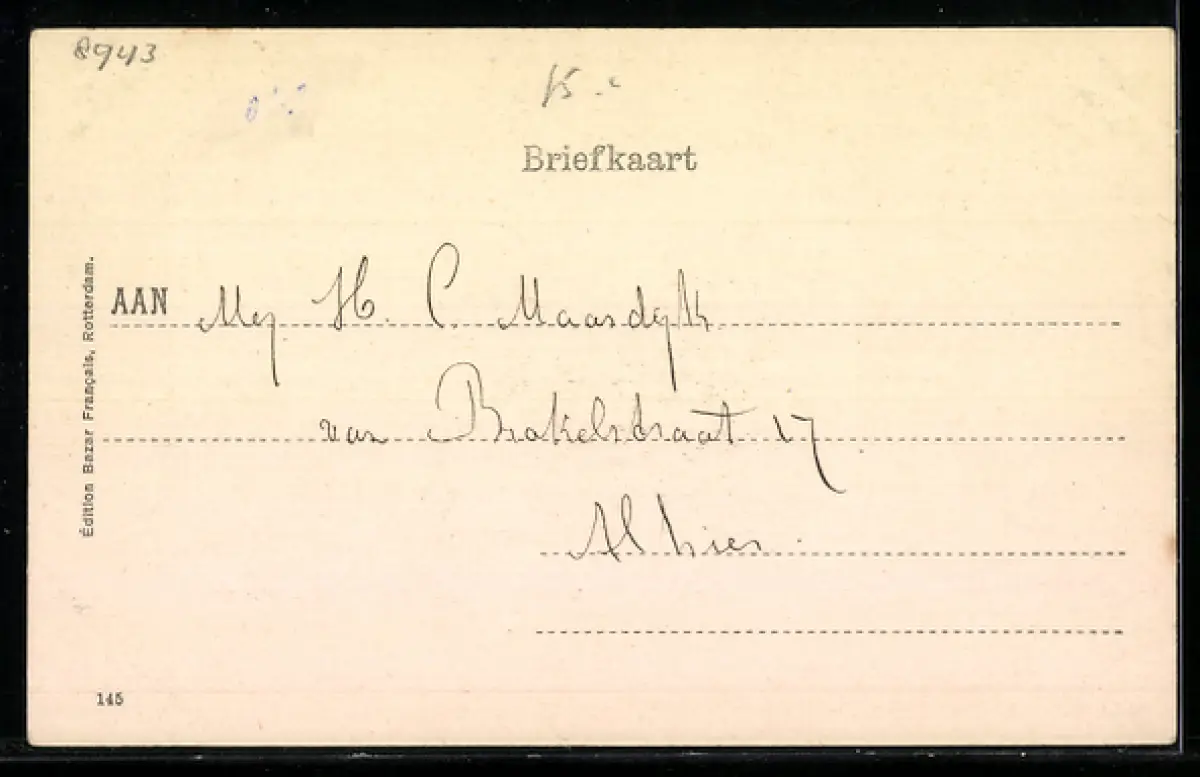 8943
Briefkaart
AAN Mej H. C. Maasdijk
van Brakelstraat 17
Alhier.
Édition Bazar Français, Rotterdam.
145